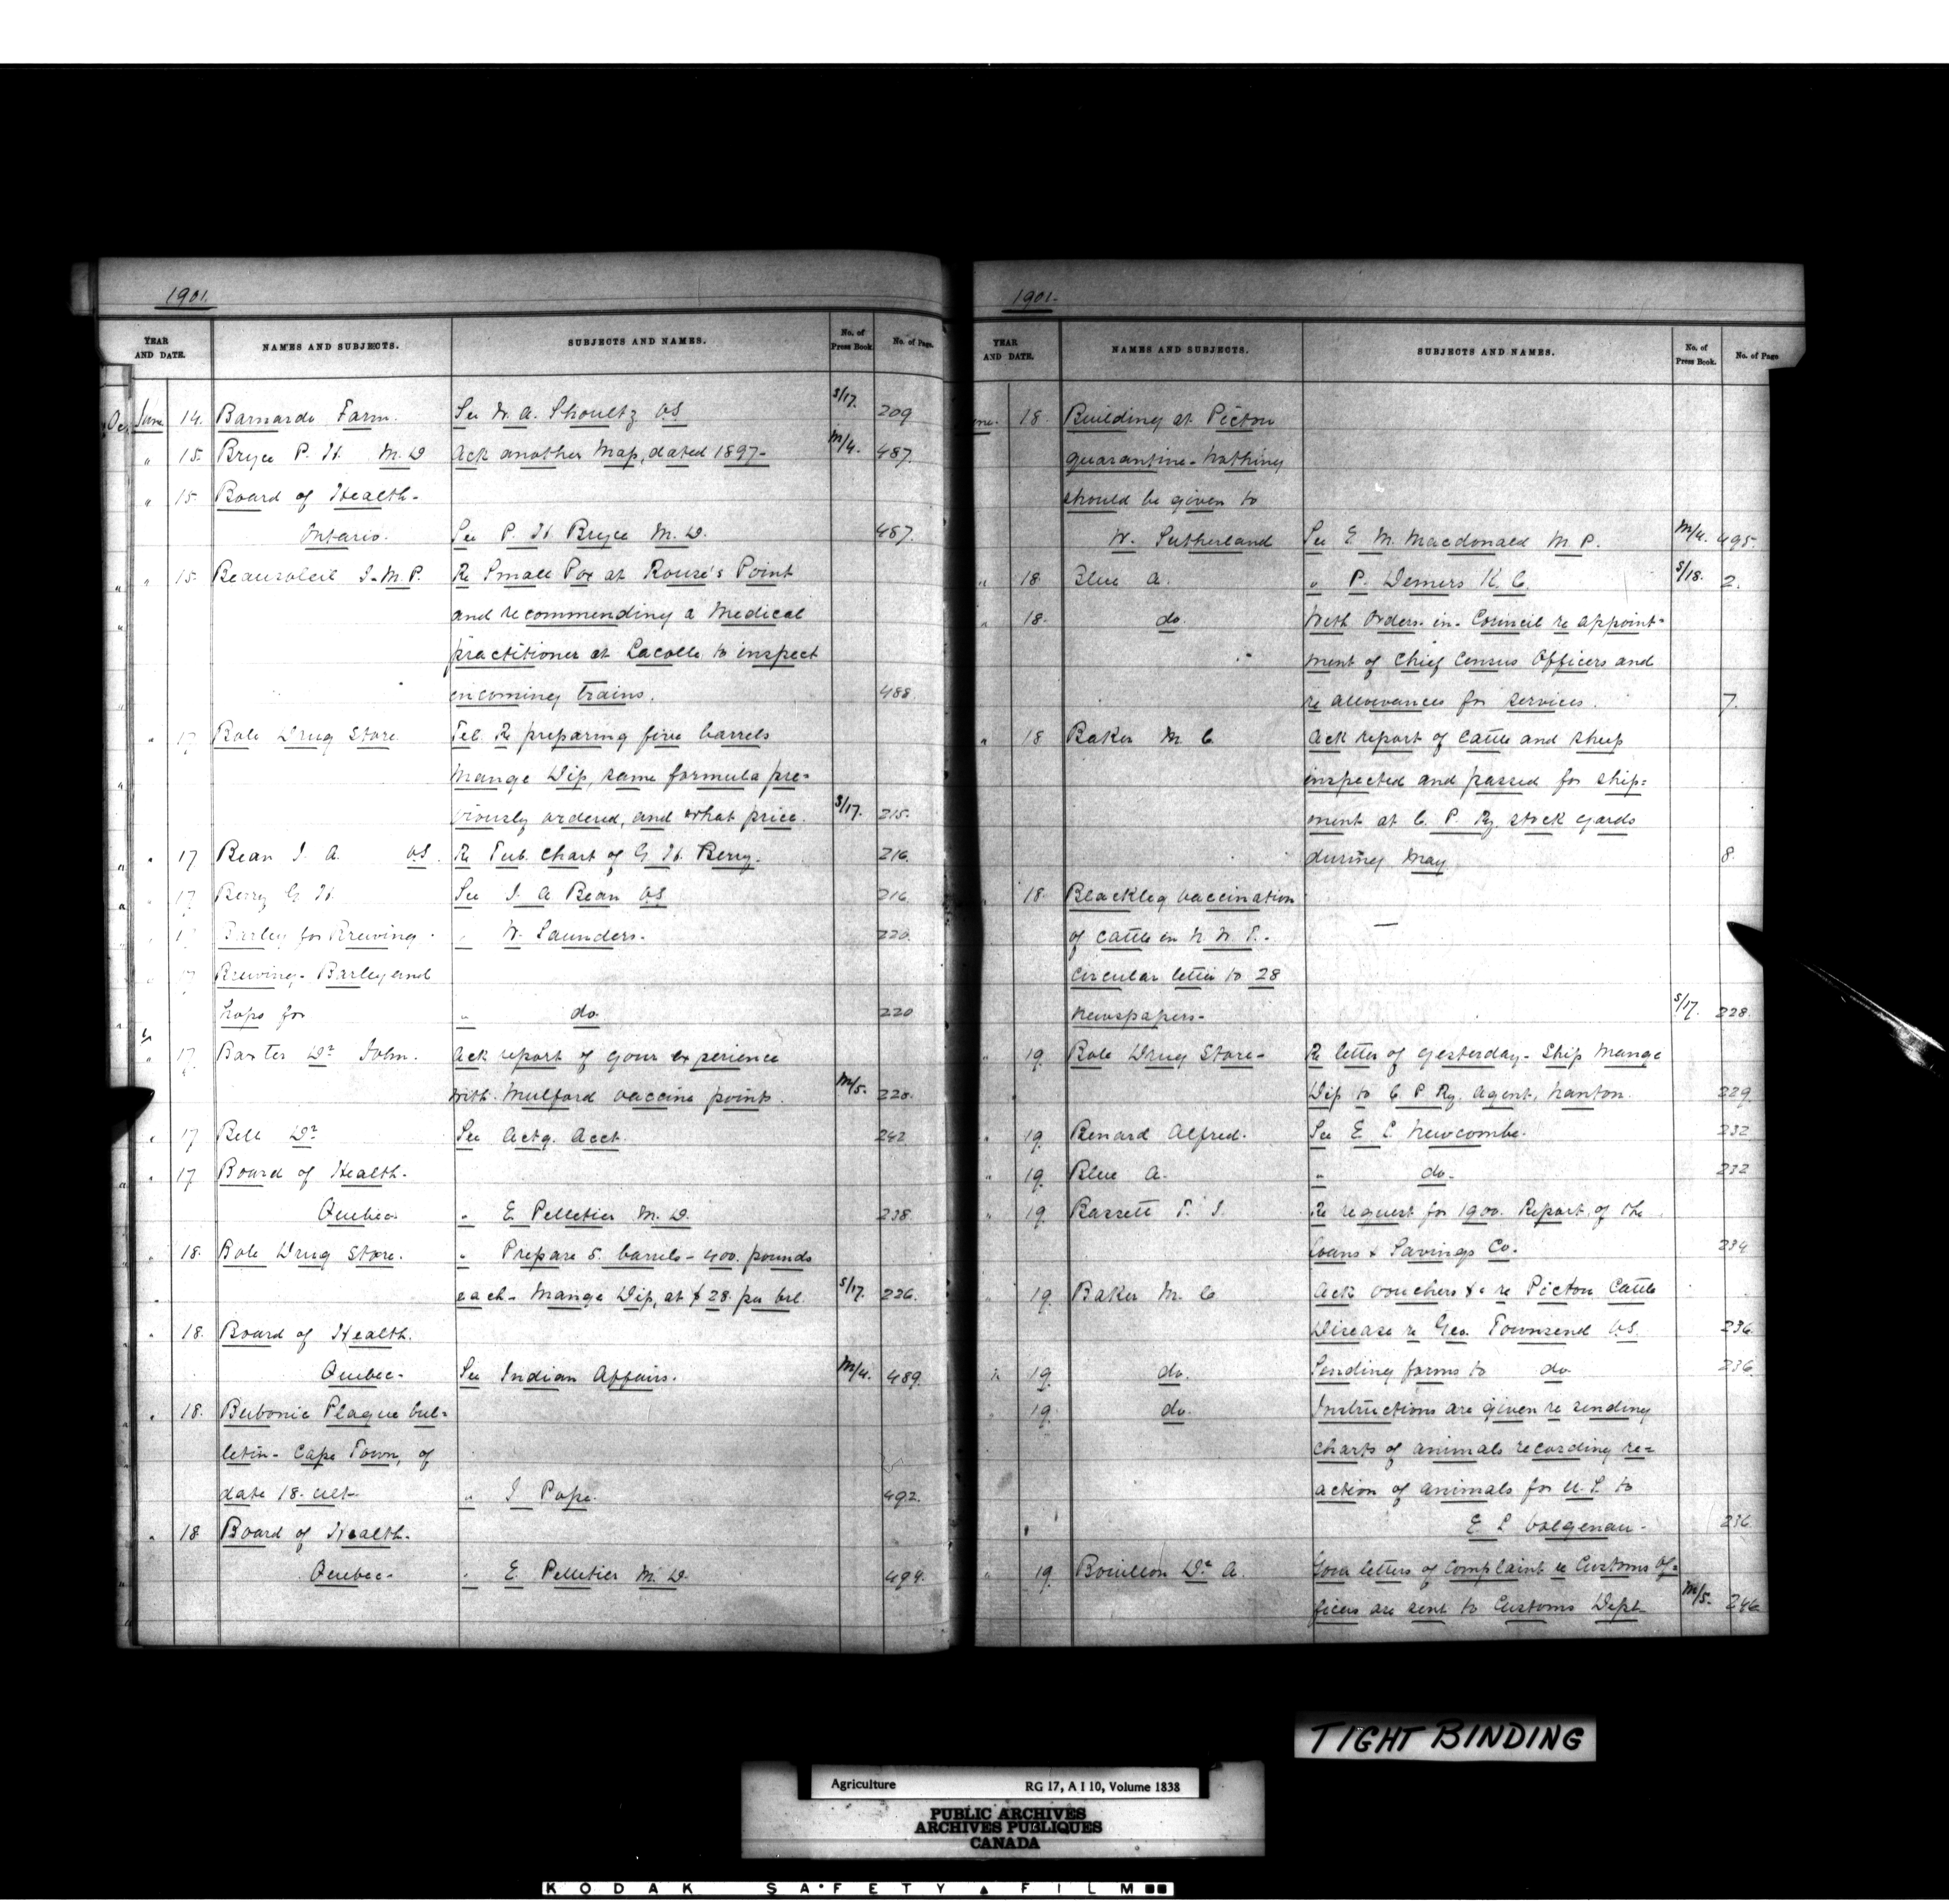 1901.
YEAR AND DATE. NAMES AND SUBJECTS. SUBJECTS AND NAMES. No. of Press Book. No. of Page.
June 14. Barnardo Farm. See W. A. Shoultz VS S/17. 209
" 15. Bryce P. H. M.D Ack another Map, dated 1897- M/4. 487.
" 15. Board of Health-
Ontario. See P. H. Bryce M.D. 487.
" 15. Beausoleil J-M.P. Re Small Pox at Rouse's Point
and recommending a Medical
practitioner at Lacolle to inspect
incoming trains. 488.
" 17 Bole Drug Store Tel. Re preparing five barrels
Mange Dip, same formula pre=
viously ordered, and what price. S/17. 215.
" 17 Bean J. A. VS. Re Tub. Chart of G. H. Berry. 216.
" 17 Berry G H. See J. A Bean VS 216.
" 17 Barley for Brewing. " W. Saunders. 220.
" 17 Brewing- Barley and
hops for " do 220
" 17 Baxter Dr John. Ack report of your experience
with Mulford vaccine points. M/5. 228.
" 17 Bell Dr See Actg. Acct. 242
" 17 Board of Health.
Quebec " E. Pelletier M.D. 238.
" 18. Bole Drug Store. " Prepare 5. barrels - 400. pounds
each- Mange Dip, at $28. per brl. S/17. 226.
" 18. Board of Health.
Quebec- See Indian Affairs. M/4. 489.
" 18. Bubonic Plague bul=
letin- Cape Town, of
date 18. ult- " J Pope. 492.
" 18 Board of Health.
Quebec- " E. Pelletier M.D. 494.
1901.
YEAR AND DATE. NAMES AND SUBJECTS. SUBJECTS AND NAMES. No. of Press Book. No. of Page
June. 18. Building at Pictou
quarantine- Nothing
should be given to
W. Sutherland See E. M. Macdonald M.P. M/4. 495.
" 18. Blue A. " P. Demers K.C. S/18. 2.
" 18. do. With Orders-in-Council re appoint-
ment of Chief Census Officers and
re allowances for services. 7.
" 18 Baker M. C. Ack report of cattle and sheep
inspected and passed for ship=
ment at C. P. Ry. stock yards
during May 8.
" 18. Blackleg vaccination
of cattle in N. W. T.- —
Circular letter to 28
Newspapers- S/17. 228.
" 19. Bole Drug Store- Re letter of yesterday- Ship Mange
Dip to C P Ry. Agent, Nanton. 229.
" 19. Benard Alfred. See E. L. Newcombe. 232
" 19. Blue A. " do. 232
" 19. Bassett T. J. Re request for 1900. Report, of the
Loans & Savings Co. 234
" 19. Baker M. C Ack vouchers &c re Pictou Cattle
Disease re Geo. Townsend VS. 236.
" 19. do. Sending forms to do 236.
" 19. do. Instructions are given re sending
charts of animals recording re=
action of animals for U.S. to
E L Volgenau- 236
" 19. Bouillon Dr. A. Your letters of complaint re Customs Of=
ficers are sent to Customs Dept- M/5. 246
TIGHT BINDING
Agriculture RG 17, A I 10, Volume 1838
PUBLIC ARCHIVES
ARCHIVES PUBLIQUES
CANADA
KODAK SAFETY FILM